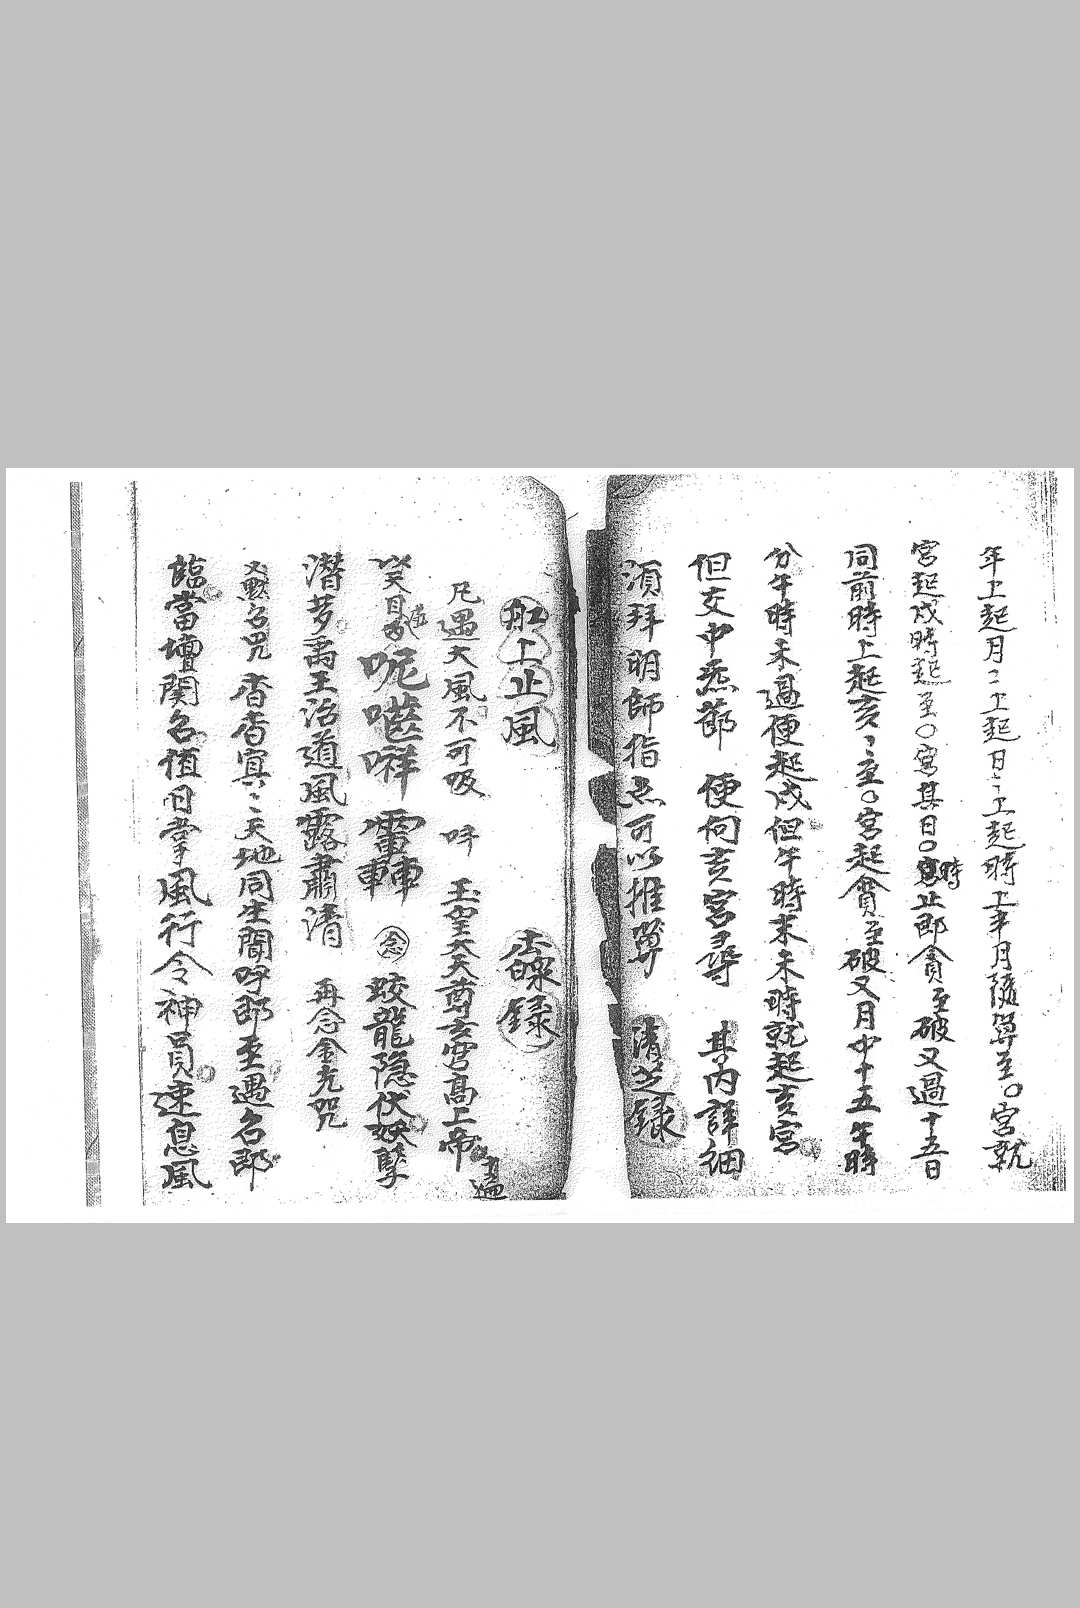 年上起月〻上起日〻上起時上半月隨算至〇宮就
宮起戌時起至〇宮某日〇時止即貪至破又過十五日
同前時上起亥〻至〇宮起貪至破又月中十五午時
分午時未過便起戌但午時末未時就起亥宮
但交中炁節 便向亥宮尋 其內詳細
須拜明師指点可以推算 清芝録
舡上止風 録
凡遇大風不可吸 呼 玉皇大天尊玄穹高上帝 遍
呢 咩 念 蛟龍隐伏妖孽
潜夢禹王治道風露肅清 再念金光咒
又默念咒 杳杳冥〻天地同生聞呼即至遇名即
臨當壇関名值日掌風行令神員速息風